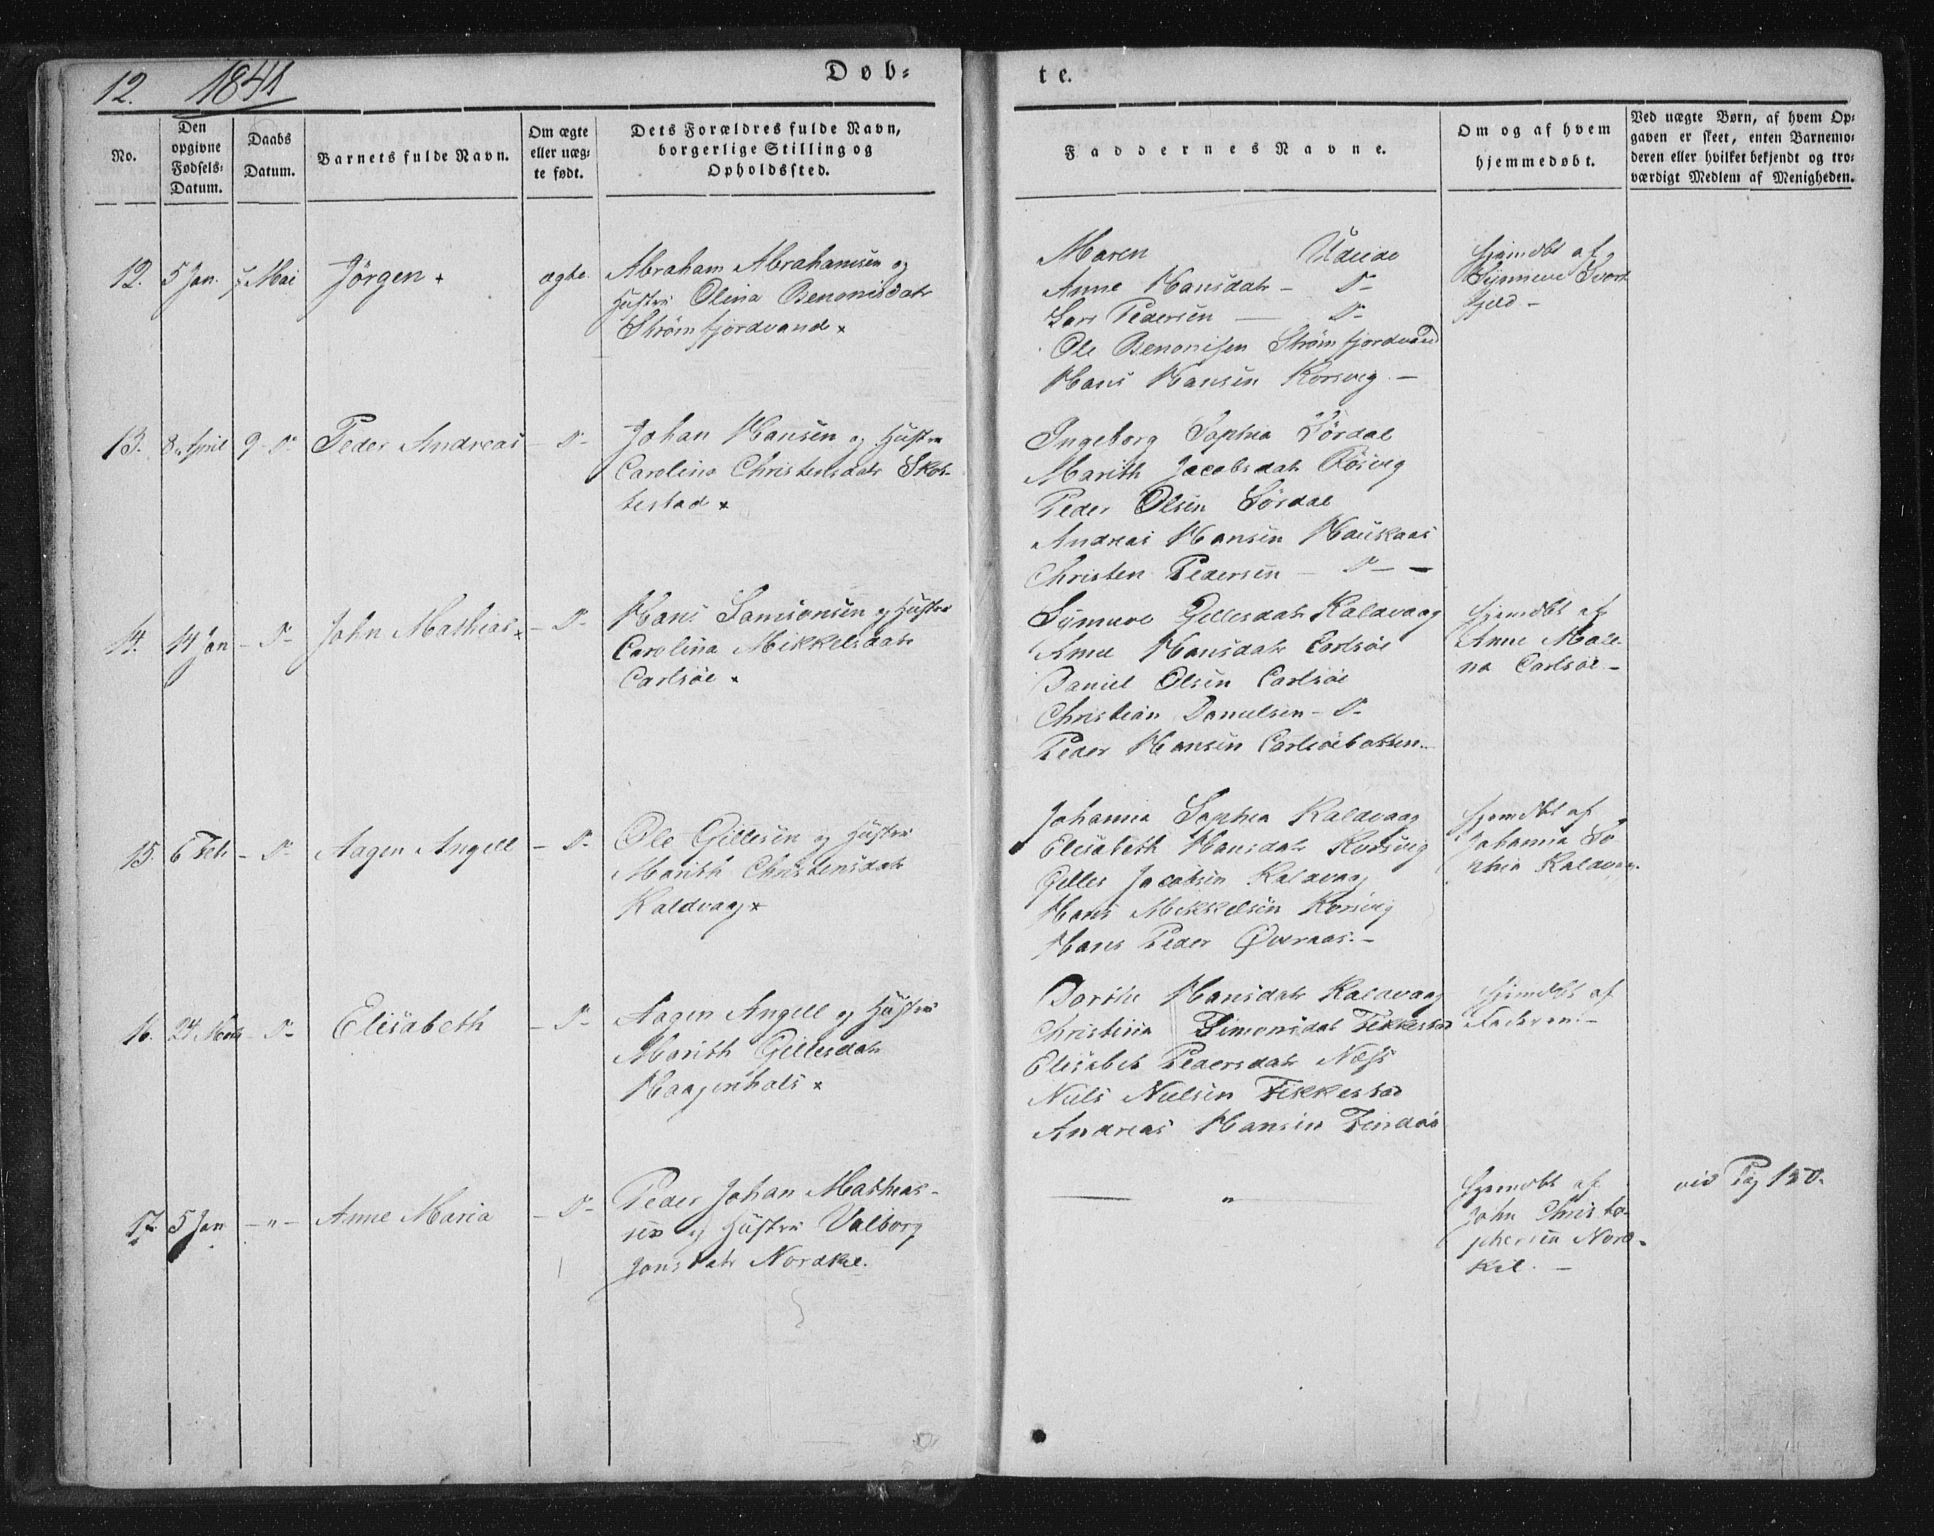 12. 1841
Døb-
te.
No.
Den opgivne Fødsels-Datum.
Daabs Datum.
Barnets fulde Navn.
Om ægte eller uæg-te født.
Dets Forældres fulde Navn, borgerlige Stilling og Opholdssted.
Faddernes Navne.
Om og af hvem hjemmedøbt.
Ved uægte Børn, af hvem Op-
gaven er skeet, enten Barnemo-
deren eller hvilket bekjendt og tro-
værdigt Medlem af Menigheden.
12. 5 Jan. Mai Jörgen ægte
Abraham Abrahamsen og
Hustru Olina Benonisdatr
Strømfjordvand
Maren Udeide
Anne Hansdatr - D-
Lars Pedersen - D-
Ole Benonisen Strømfjordvand
Hans Hansen Korsvig -
hjemdbt af
Synneve Svort
fjeld -
13. 8 April 9 - D- Peder Andreas - D-
Johan Hansen og Hustru
Carolina Christensdatr Skot-
testad
Ingeborg Sophia Sördal
Marith Jacobsdatr Rösvig
Peder Olsen Sørdal
Andreas Hansen Haukaas
Christen Pedersen - D- -
14. 14 Jan - D- John Mathias - D-
Hans Samsonsen og Hustru
Carolina Mikkelsdatr
Carlsöe
Synneve Gillesdatr Kaldvaag
Anne Hansdatr Carlsöe
Daniel Olsen Carlsöe
Christian Danielsen - D-
Peder Hansen Carlsöebotten
hjemdbt af
Anne Male-
na Carlsöe -
15. 6 Feb - D- Aagen Angell - D-
Ole Gillesen og Hustru
Marith Christensdatr
Kaldvaag
Johanna Sophia Kaldvaag
Elisabeth Hansdatr Korsvig
Gilles Jacobsen Kaldvaag
Hans Mikkelsen Korsvig
Hans Peder Øvernæs. -
hjemdbt af
Johanna So
phia Kaldvaag
16. 24 Marts - D- Elisabeth - D-
Aagen Angell og Hustru
Marith Gillesdatr
Haagenhals
Dorthe Hansdatr Kaldvaag
Christina Simonsdat Fikkestad
Elisabet Pedersdatr Næss
Niels Nielsen Fikkestad
Andreas Hansen Findöe
hjemdbt af
Faderen. -
17. 5 Jan - " - Anne Maria - D-
Peder Johan Mathias-
sen og Hustru Valborg
Jonsdatr Nordkil.
"
hjemdbt af
John Christo-
phersen Nord-
kil. -
vid Pag 150.